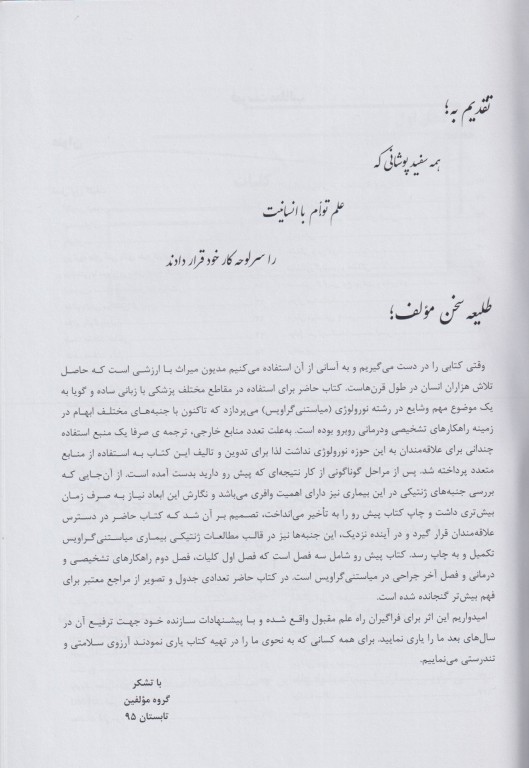 تقدیم به؛
همه سفید پوشانی که
علم توأم با انسانیت
را سرلوحه کار خود قرار دادند
طلیعه سخن مؤلف؛
وقتی کتابی را در دست می‌گیریم و به آسانی از آن استفاده می‌کنیم مدیون میراث با ارزشی است که حاصل
تلاش هزاران انسان در طول قرن‌هاست. کتاب حاضر برای استفاده در مقاطع مختلف پزشکی با زبانی ساده و گویا به
یک موضوع مهم وشایع در رشته نورولوژی (میاستنی‌گراویس) می‌پردازد که تاکنون با جنبه‌های مختلف ابهام در
زمینه راهکارهای تشخیصی ودرمانی روبرو بوده است. به‌علت تعدد منابع خارجی، ترجمه ی صرفا یک منبع استفاده
چندانی برای علاقه‌مندان به این حوزه نورولوژی نداشت لذا برای تدوین و تالیف این کتاب به استفاده از منابع
متعدد پرداخته شد. پس از مراحل گوناگونی از کار نتیجه‌ای که پیش رو دارید بدست آمده است. از آن‌جایی که
بررسی جنبه‌های ژنتیکی در این بیماری نیز دارای اهمیت وافری می‌باشد و نگارش این ابعاد نیاز به صرف زمان
بیش‌تری داشت و چاپ کتاب پیش رو را به تأخیر می‌انداخت، تصمیم بر آن شد که کتاب حاضر در دسترس
علاقه‌مندان قرار گیرد و در آینده نزدیک، این جنبه‌ها نیز در قالب مطالعات ژنتیکی بیماری میاستنی‌گراویس
تکمیل و به چاپ رسد. کتاب پیش رو شامل سه فصل است که فصل اول کلیات، فصل دوم راهکارهای تشخیصی و
درمانی و فصل آخر جراحی در میاستنی‌گراویس است. در کتاب حاضر تعدادی جدول و تصویر از مراجع معتبر برای
فهم بیش‌تر گنجانده شده است.
امیدواریم این اثر برای فراگیران راه علم مقبول واقع شده و با پیشنهادات سازنده خود جهت ترفیع آن در
سال‌های بعد ما را یاری نمایید. برای همه کسانی که به نحوی ما را در تهیه کتاب یاری نمودند آرزوی سلامتی و
تندرستی می‌نماییم.
با تشکر
گروه مؤلفین
تابستان ۹۵